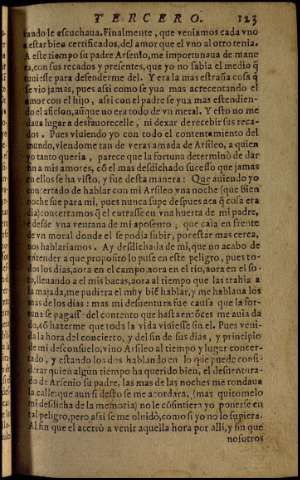 TERCERO. 123
tando le escuchaua. Finalmente, que veniamos cada vno
a estar bien certificados, del amor que el vno al otro tenia.
A este tiempo su padre Arsenio, me importunaua de mane
ra, con sus recados y presentes, que yo no sabia el medio q̃
tuuiesse para desenderme del. Y era la mas estraña cosa q̃
se vio jamas, pues assi como se yua mas acrecentando el
amor con el hijo, assi con el padre se yua mas estendien-
do el aficion, aũque no era todo de vn metal. Y esto no me
daua lugar a desfauorecelle, ni dexar de recebir sus reca-
dos. Pues viuiendo yo con todo el contentamiento del
mundo, viendome tan de veras amada de Arsileo, a quien
yo tanto queria, parece que la fortuna determinò de dar
fin a mis amores, cõ el mas desdichado sucesso que jamas
en ellos se ha visto, y fue desta manera: Que auiendo yo
concertado de hablar con mi Arsileo vna noche (que bien
noche fue para mi, pues nunca supe despues aca q̃ cosa era
dia) concertamos q̃ el entrasse en vna huerta de mi padre,
y desde vna ventana de mi aposento, que caia en frente
de vn moral donde el se podia subir, por estar mas cerca,
nos hablariamos. Ay desdichada de mi, que no acabo de
entender a que proposito lo puse en este peligro, pues to-
dos los dias, aora en el campo, aora en el rio, aora en el so-
to, lleuando a el mis vacas, aora al tiempo que las trahia a
la majada, me pudiera el muy biẽ hablar, y me hablaua los
mas de los dias: mas mi desuentura fue causa que la for-
tuna se pagasse del contento que hasta entõces me auia da
do, cõ hazerme que toda la vida viuiesse sin el. Pues veni-
da la hora del concierto, y del fin de sus dias, y principio
de mi desconsuelo, vino Arsileo al tiempo y lugar concer-
tado, y estando los dos hablando en lo que puede consi-
derar quien algun tiempo ha querido bien, el desuentura-
do de Arsenio su padre, las mas de las noches me rondaua
la calle: que aun si desto se me acordara, (mas quitomelo
mi desdicha de la memoria) no le cõsintiera yo ponerse en
tal peligro, pero assi se me oluidò, como si yo no lo supiera.
Al fin que el acertò a venir aquella hora por alli, y sin que
nosotros